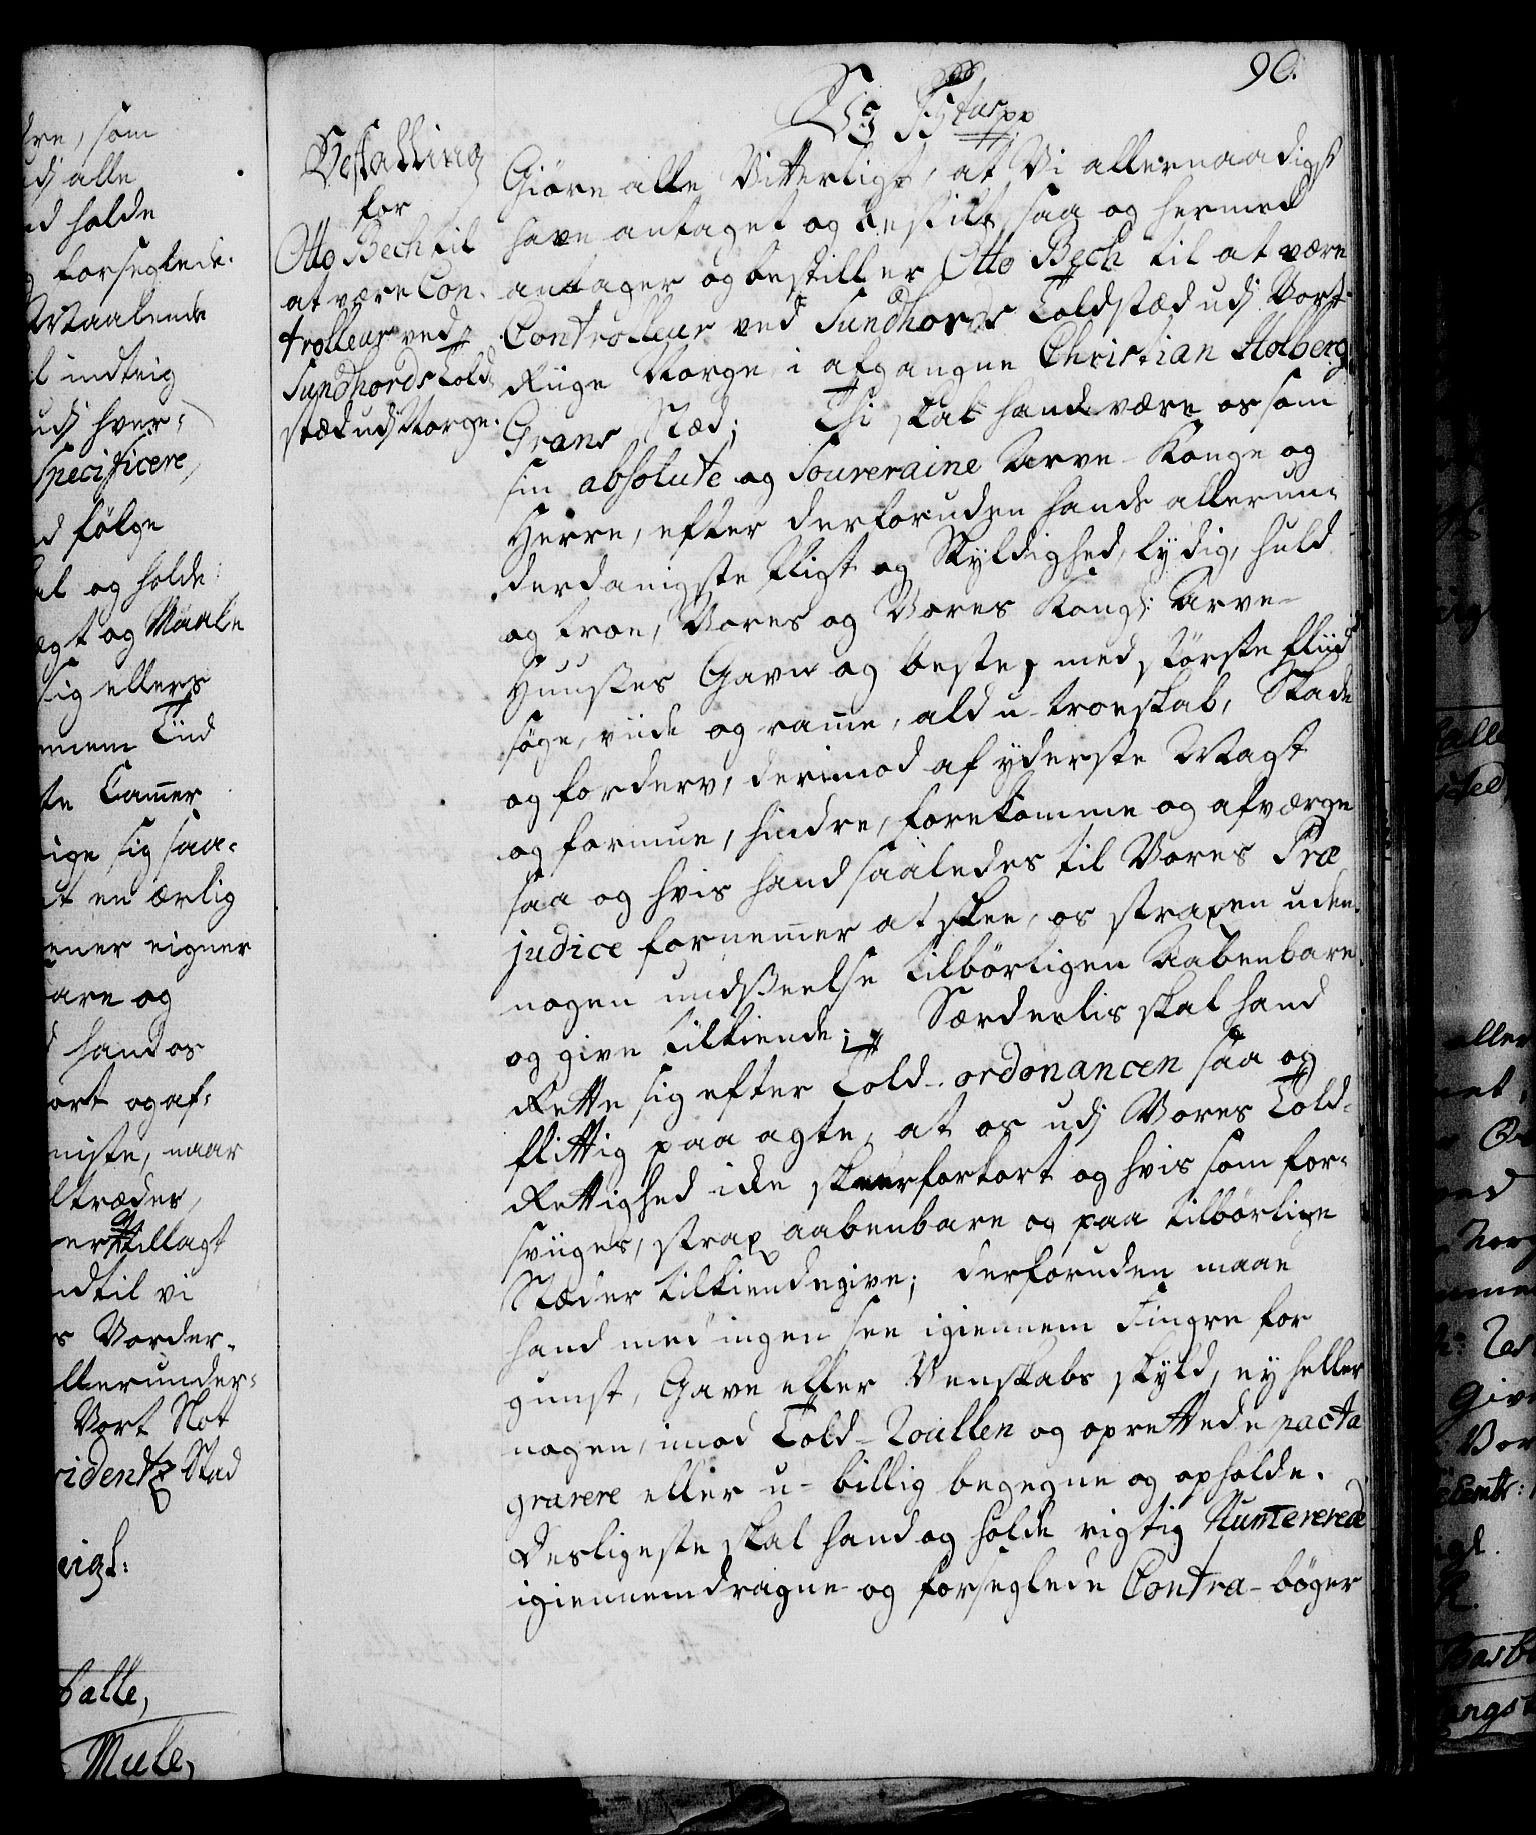 90.
Vg F5 tus pp
Bestalling
for
Otto Bech til
at være Con-
trolleur ved
Sundhords Told-
stæd udj Norge.
Giøre alle Vitterligt, at Vi allernaadigst
have antaget og bestilt, saa og hermed
antager og bestiller Otto Bech til at være
Controlleur ved Sundhords Toldstæd udj Vort
Riige Norge, i afgangne Christian Holberg
Grans Stæd; Thi skal hand være os som
sin absolute og Souveraine Arve-Konge og
Herre, efter derforuden hands allerun-
derdanigste Pligt og Skyldighed, lydig, huld
og troe, Vores og Vores Kongl: Arve-
Huuses Gavn og beste, med største fliid
søge, viide og ramme, ald u-troeskab, Skade
og forderv, derimod af yderste Magt
og formue, hindre, forekomme og afværge
saa og hvis hand saaledes til Vores Præ
judice fornemmer at skee, os straxen uden
nogen undseelse tilbørligen Aabenbare
og give tilkiende; Særdeelis skal hand
Rette sig efter Told-ordonancen saa og
flittig paa agte, at os udj Vores Told-
Rettighed icke skeer forkort og hvis som for-
sviiges, strax aabenbare og paa tilbørlige
Stæder tilkiendegive; derforuden maae
hand med ingen see igiennem Fingre for
gunst, Gave eller Venskabs skyld, ey heller
nogen, imod Told-Roullen og oprettede pacta
gravere eller u-billig begegne og opholde.
Desligeste skal hand og holde rigtig Numererede
igiennemdragne og forseglede Contra-bøger